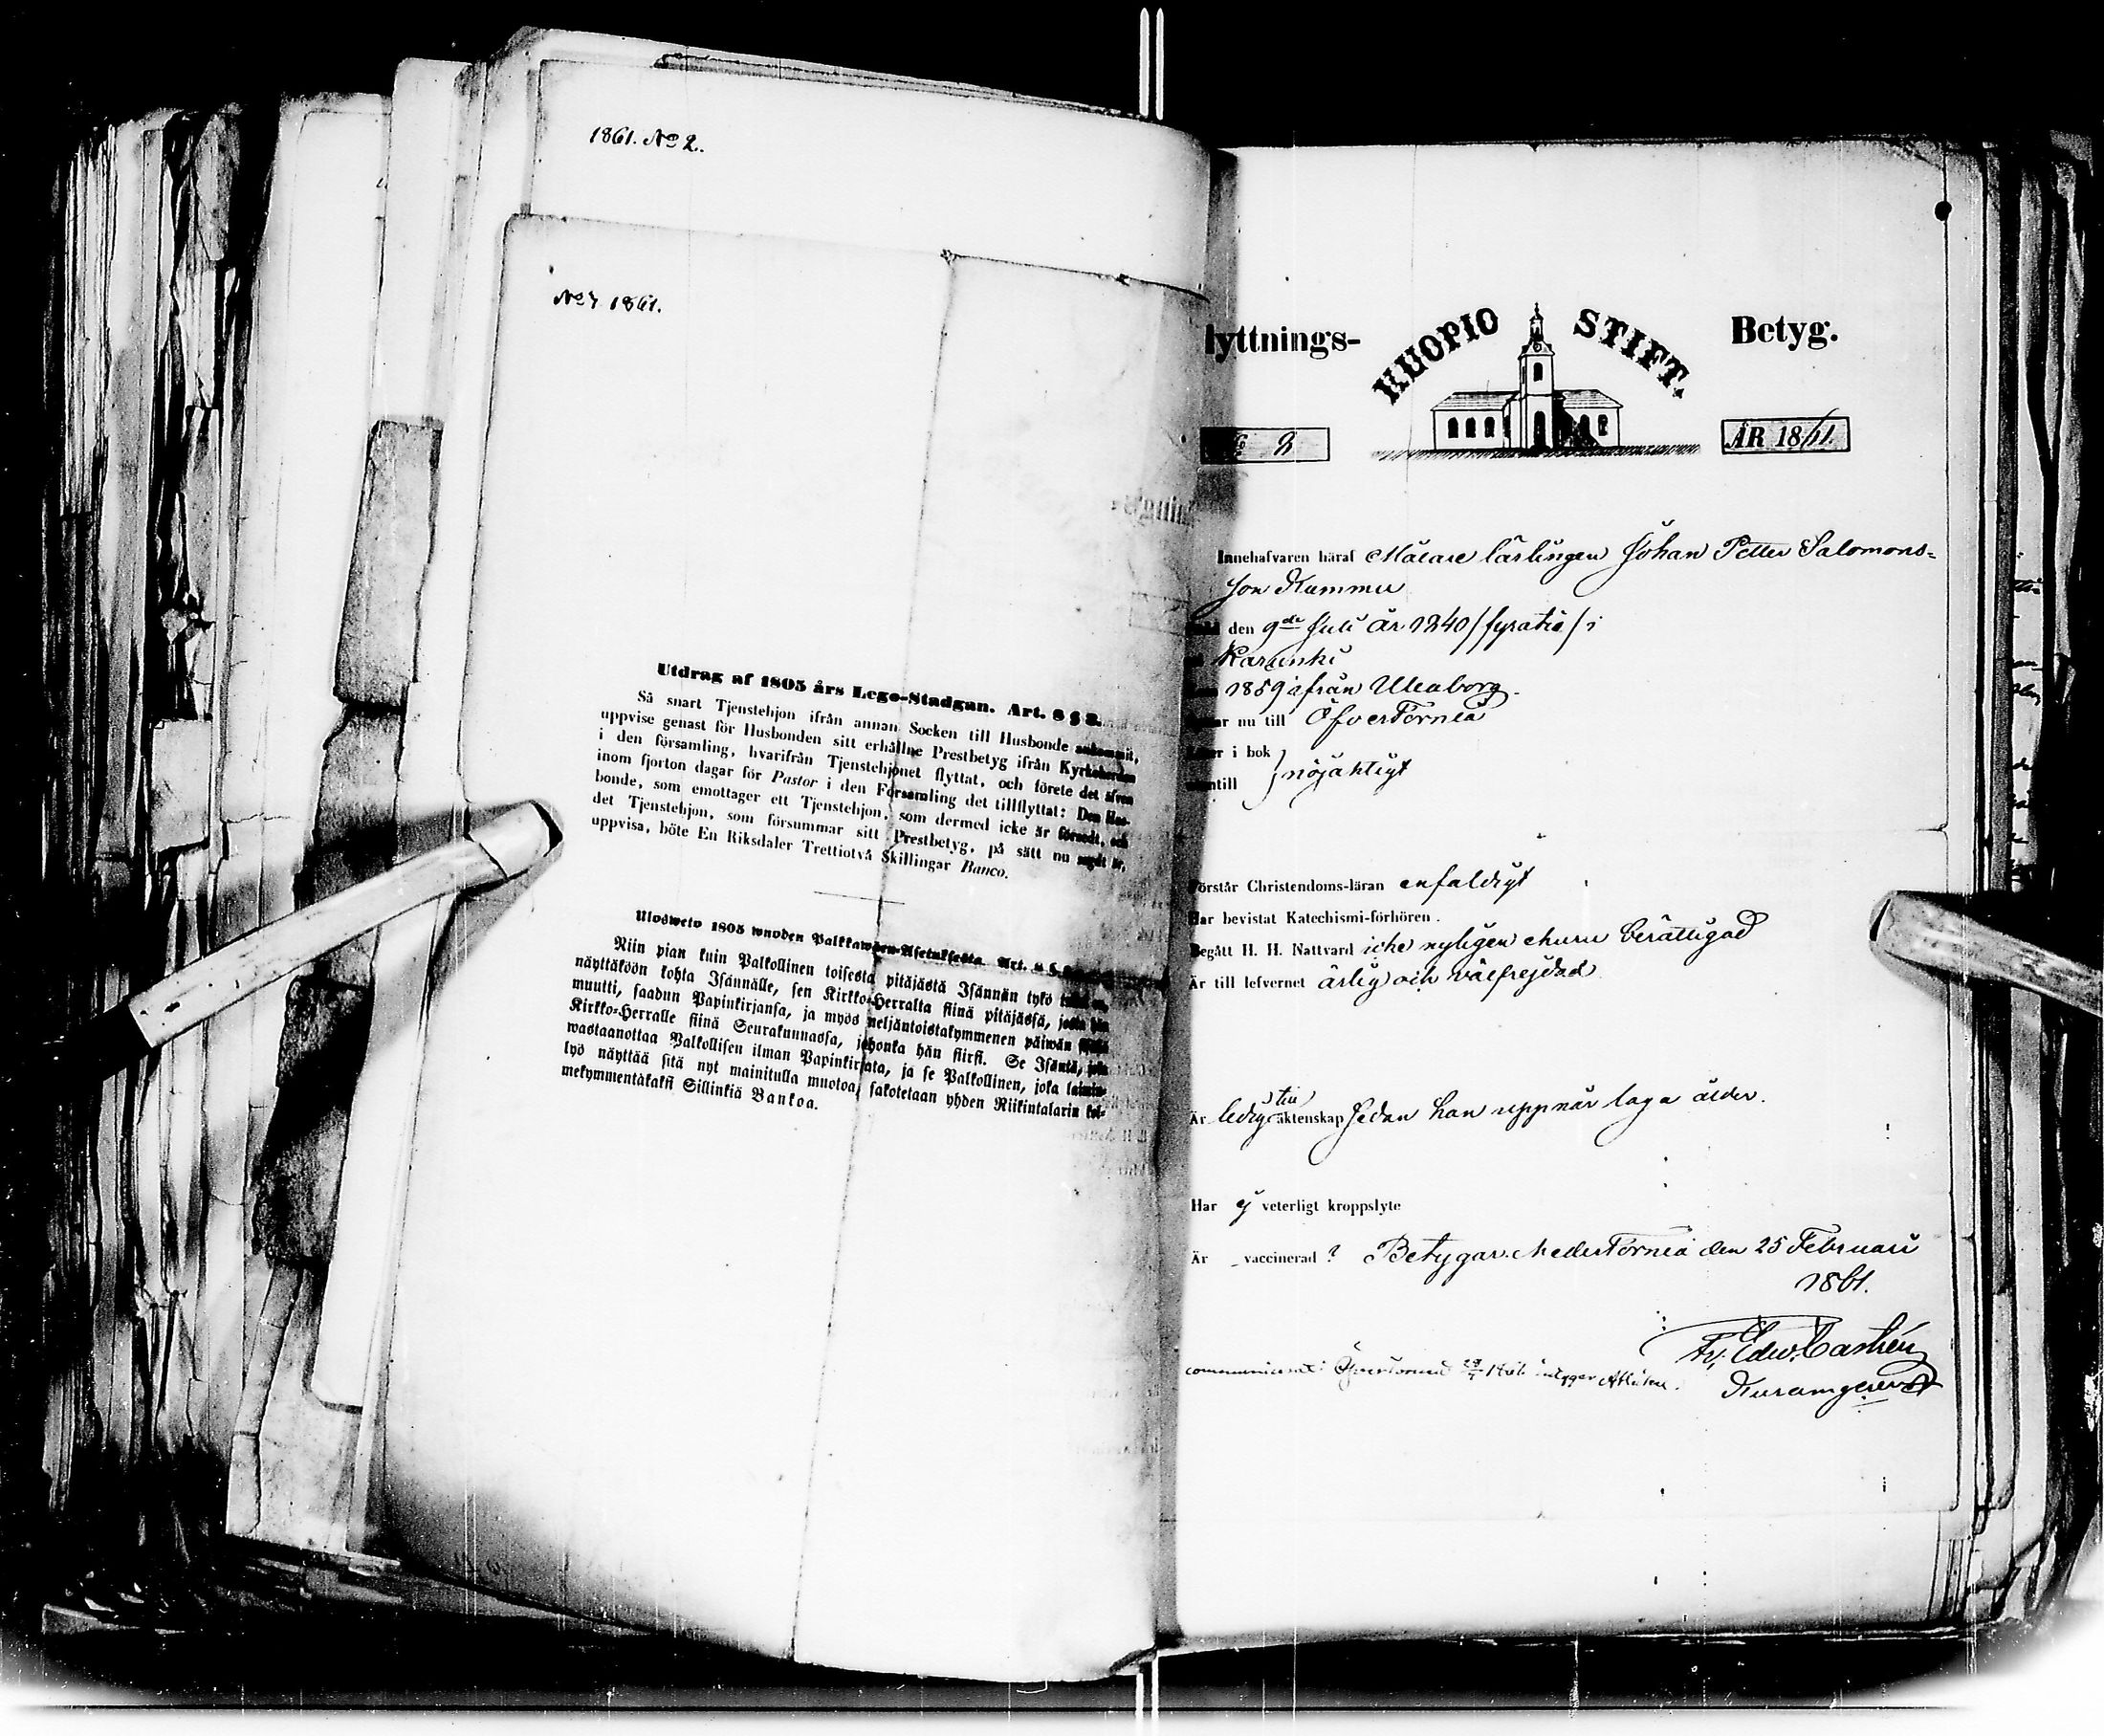 1861. No 2.
No 7 1861.
Utdrag af 1805 års Lego-Stadgan. Art. 8 § 3.
Så snart Tjenstehjon ifrån annan Socken till Husbonde ankommit,
uppvise genast för Husbonden sitt erhållne Prestbetyg ifrån Kyrkoherden
i den församling, hvarifrån Tjenstehjonet flyttat, och förete det äfven
inom fjorton dagar för Pastor i den Församling det tillflyttat: Den Hus-
bonde, som emottager ett Tjenstehjon, som dermed icke är försedt, och
det Tjenstehjon, som försummar sitt Prestbetyg, på sätt nu sagdt är,
uppvisa, böte En Riksdaler Trettiotvå Skillingar Banco.
Ulosweto 1805 wuoden Palkkawäen-Asetuksesta. Art. 8 §.
Niin pian kuin Palkollinen toisesta pitäjästä Isännän tykö
näyttäköön kohta Isännälle, sen Kirkko-Herralta siinä pitäjässä, josta hän
muutti, saadun Papinkirjansa, ja myös neljäntoistakymmenen päiwän
Kirkko-Herralle siinä Seurakunnassa, johonka hän siirsi. Se Isäntä, joka
wastaanottaa Palkollisen ilman Papinkirjata, ja se Palkollinen, joka laimin-
lyö näyttää sitä nyt mainitulla muotoa, sakotetaan yhden Riikintalarin kol-
mekymmentäkaksi Sillinkiä Bankoa.
lyttnings- KUOPIO STIFT. Betyg.
8 ÅR 1861
Innehafvaren häraf Målare lärlingen Johan Petter Salomons-
son Kummu
den 9de Juli år 1840 /fyratio/ i
Karunki
1859 ifrån Uleaborg.
nu till ÖfverTorneå
i bok
nöjaktigt
till
Förstår Christendoms-läran enfaldigt
Har bevistat Katechismi-förhören.
Begått H. H. Nattvard icke nyligen ehuru berättigad
Är till lefvernet ärlig och välfrejdad
Är ledig till äktenskap sedan han uppnår laga ålder.
Har ej veterligt kroppslyte
Är vaccinerad? Betygar. NederTorneå den 25 Februari
1861.
Fr. Edw. Castrén
communicerat: Öfvertorneå